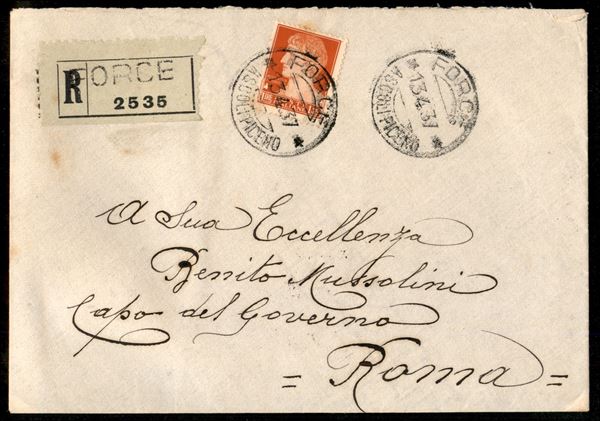 R
FORCE
2535
FORCE
13.4.37
ASCOLI PICENO
FORCE
13.4.37
ASCOLI PICENO
A Sua Eccellenza
Benito Mussolini
Capo del Governo
= Roma =